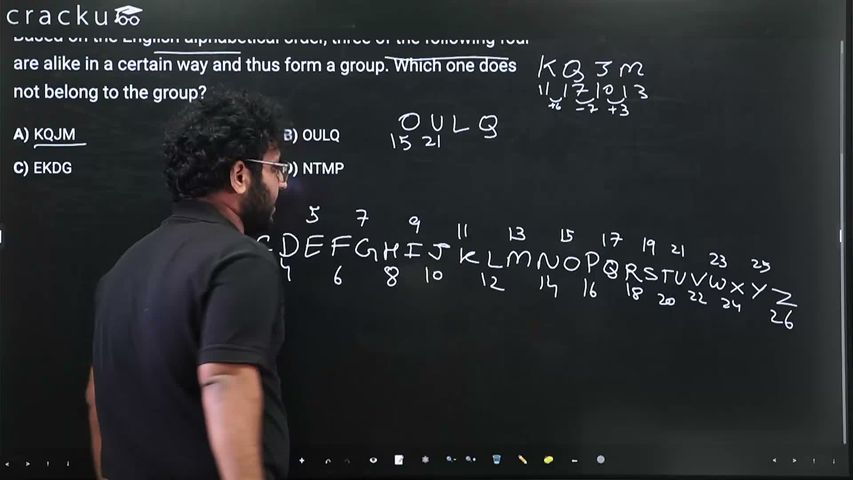 cracku
Based on the English alphabetical order, three of the following four
are alike in a certain way and thus form a group. Which one does
not belong to the group?
A) KQJM
B) OULQ
C) EKDG
D) NTMP
K Q J M
11 17 10 13
+6 -7 +3
O U L Q
15 21
5 7 9 11 13 15 17 19 21 23 25
D E F G H I J K L M N O P Q R S T U V W X Y Z
4 6 8 10 12 14 16 18 20 22 24 26